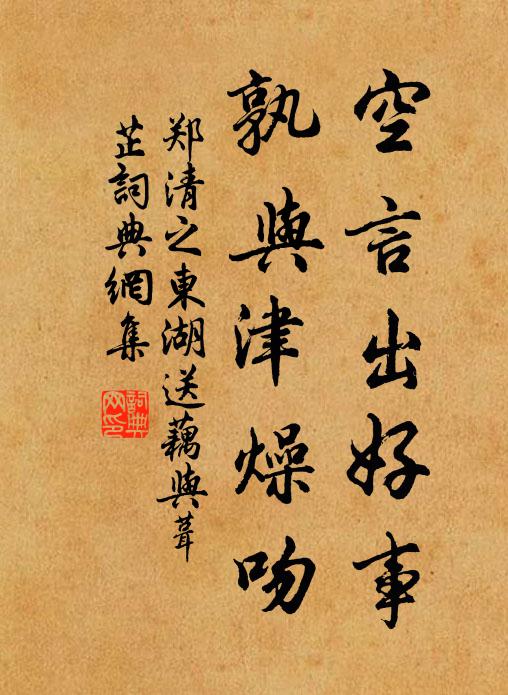 空言出好事
孰與津燥吻
郑清之東湖送藕與葺
芷詞典網集
詞典
网印